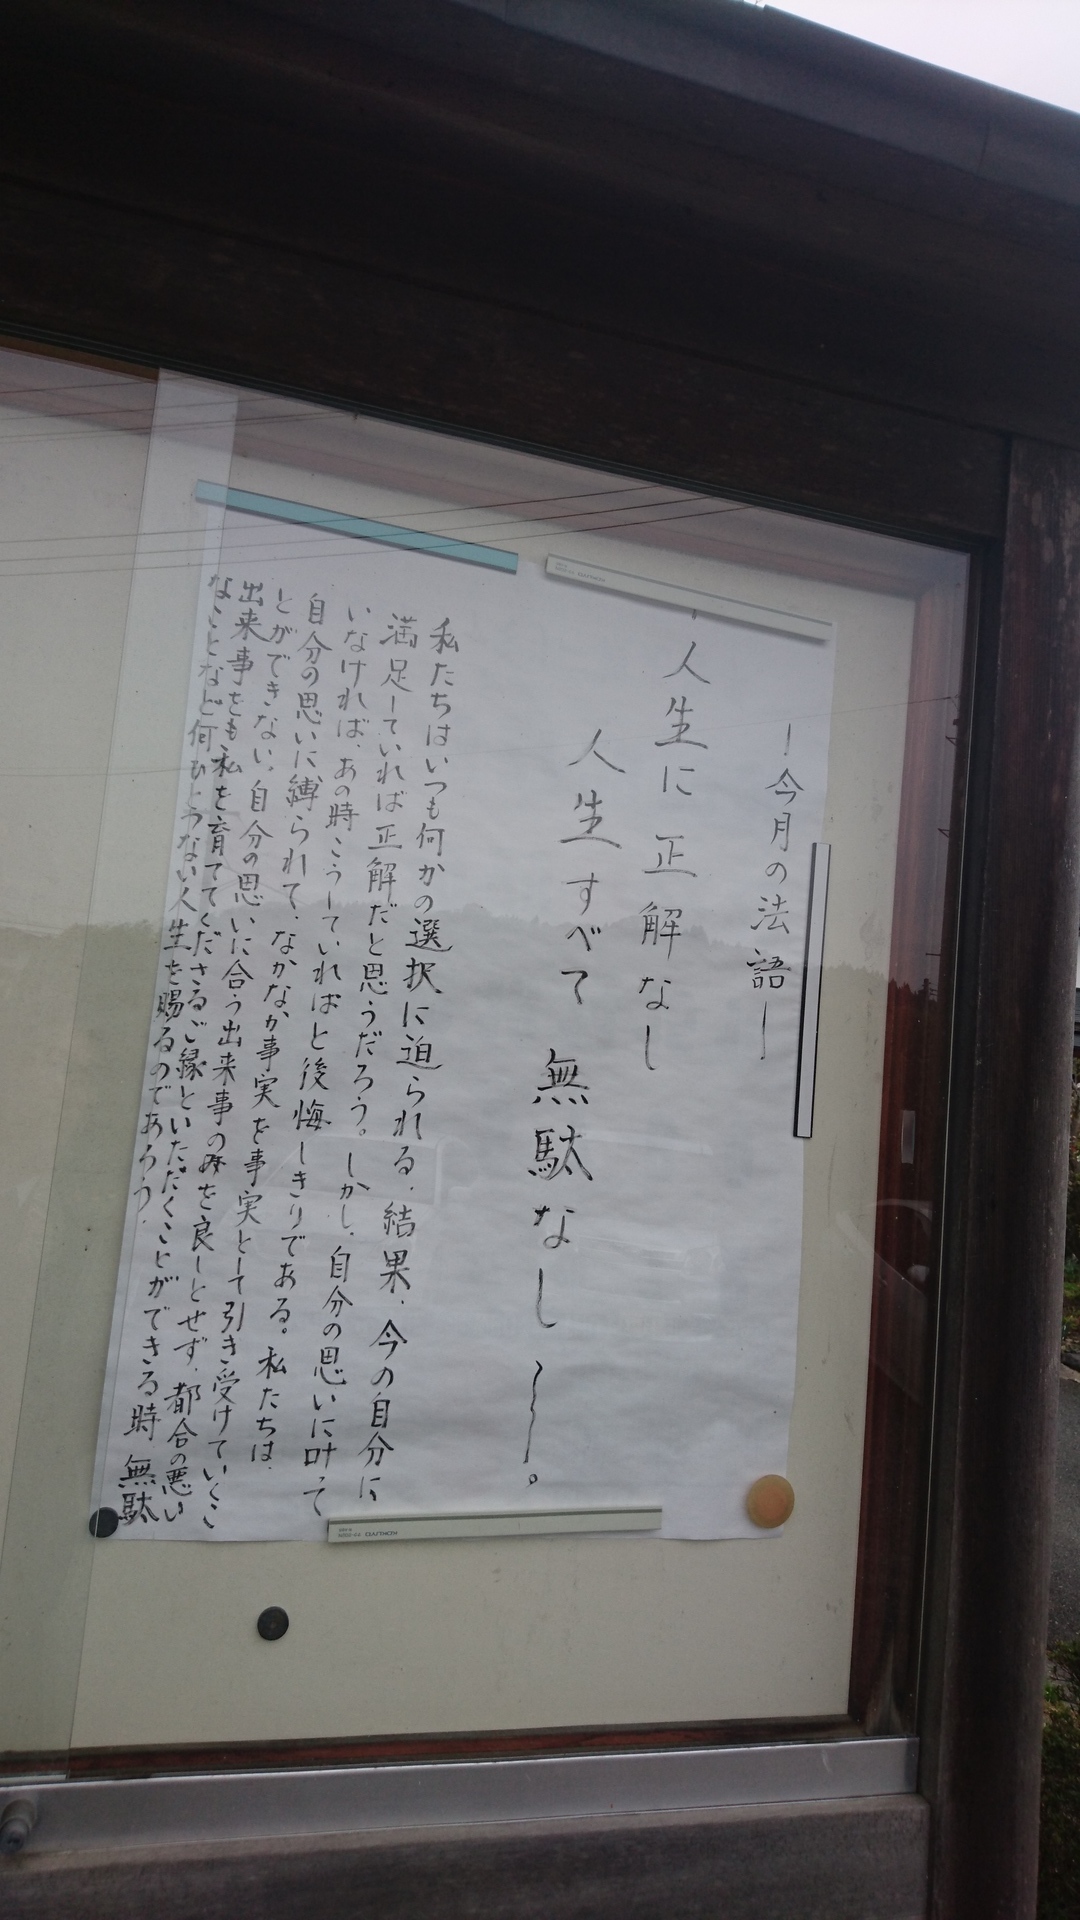 ー今月の法語ー
「人生に正解なし
人生すべて無駄なし」ー。
私たちはいつも何かの選択に迫られる。結果、今の自分に
満足していれば正解だと思うだろう。しかし、自分の思いに叶って
いなければ、あの時こうしていればと後悔しきりである。私たちは、
自分の思いに縛られて、なかなか事実を事実として引き受けていくこ
とができない。自分の思いに合う出来事のみを良しとせず、都合の悪い
出来事をも私を育ててくださるご縁といただくことができる時 無駄
なことなど何ひとつない人生を賜るのであろう。